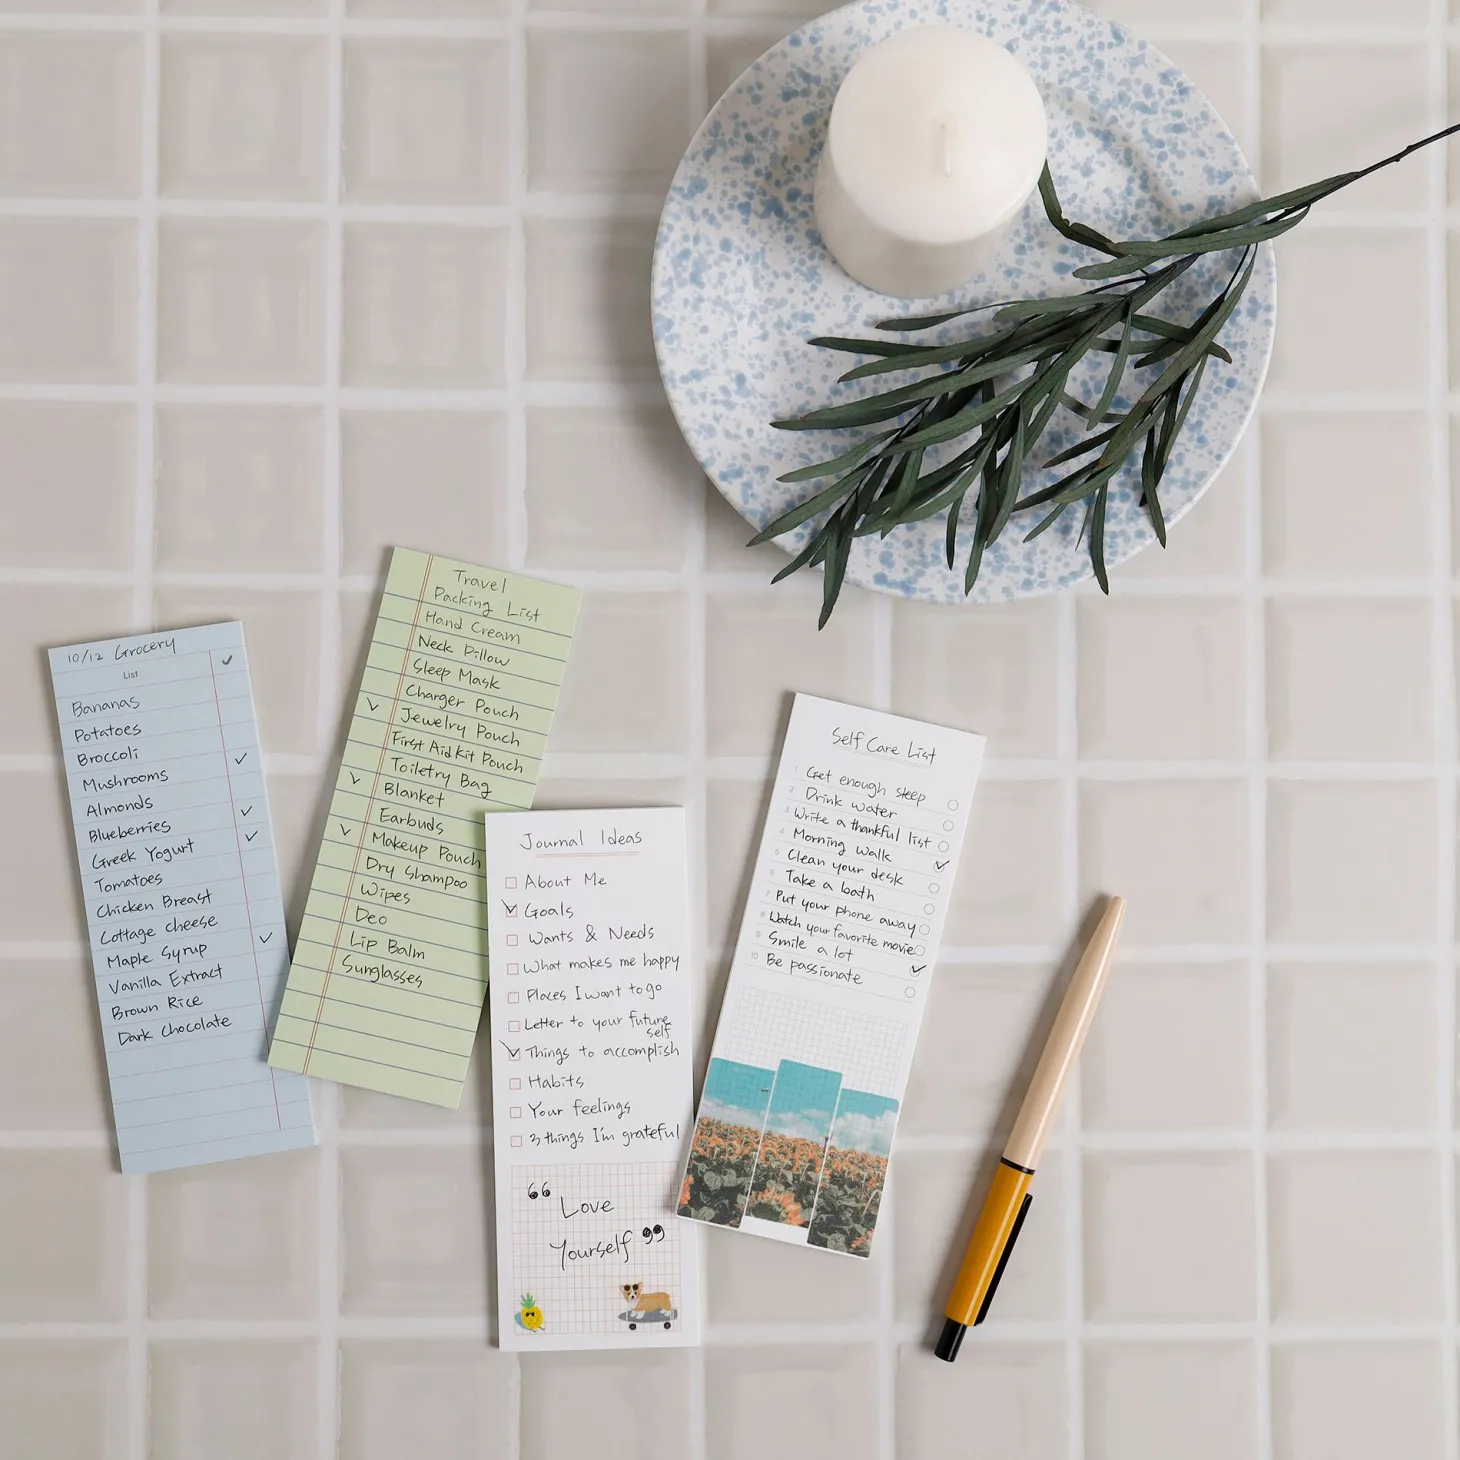 10/12 Grocery
List
Bananas
Potatoes
Broccoli
Mushrooms
Almonds
Blueberries
Greek Yogurt
Tomatoes
Chicken Breast
Cottage cheese
Maple Syrup
Vanilla Extract
Brown Rice
Dark Chocolate
Travel
Packing List
Hand Cream
Neck Pillow
Sleep Mask
Charger Pouch
Jewelry Pouch
First Aid Kit Pouch
Toiletry Bag
Blanket
Earbuds
Makeup Pouch
Dry Shampoo
Wipes
Deo
Lip Balm
Sunglasses
Journal Ideas
About Me
Goals
Wants & Needs
What makes me happy
Places I want to go
Letter to your future
self
Things to accomplish
Habits
Your feelings
3 things I'm grateful
“ Love
Yourself ”
Self Care List
1 Get enough sleep
2 Drink water
3 Write a thankful list
4 Morning walk
5 Clean your desk
6 Take a bath
7 Put your phone away
8 Watch your favorite movie
9 Smile a lot
10 Be passionate